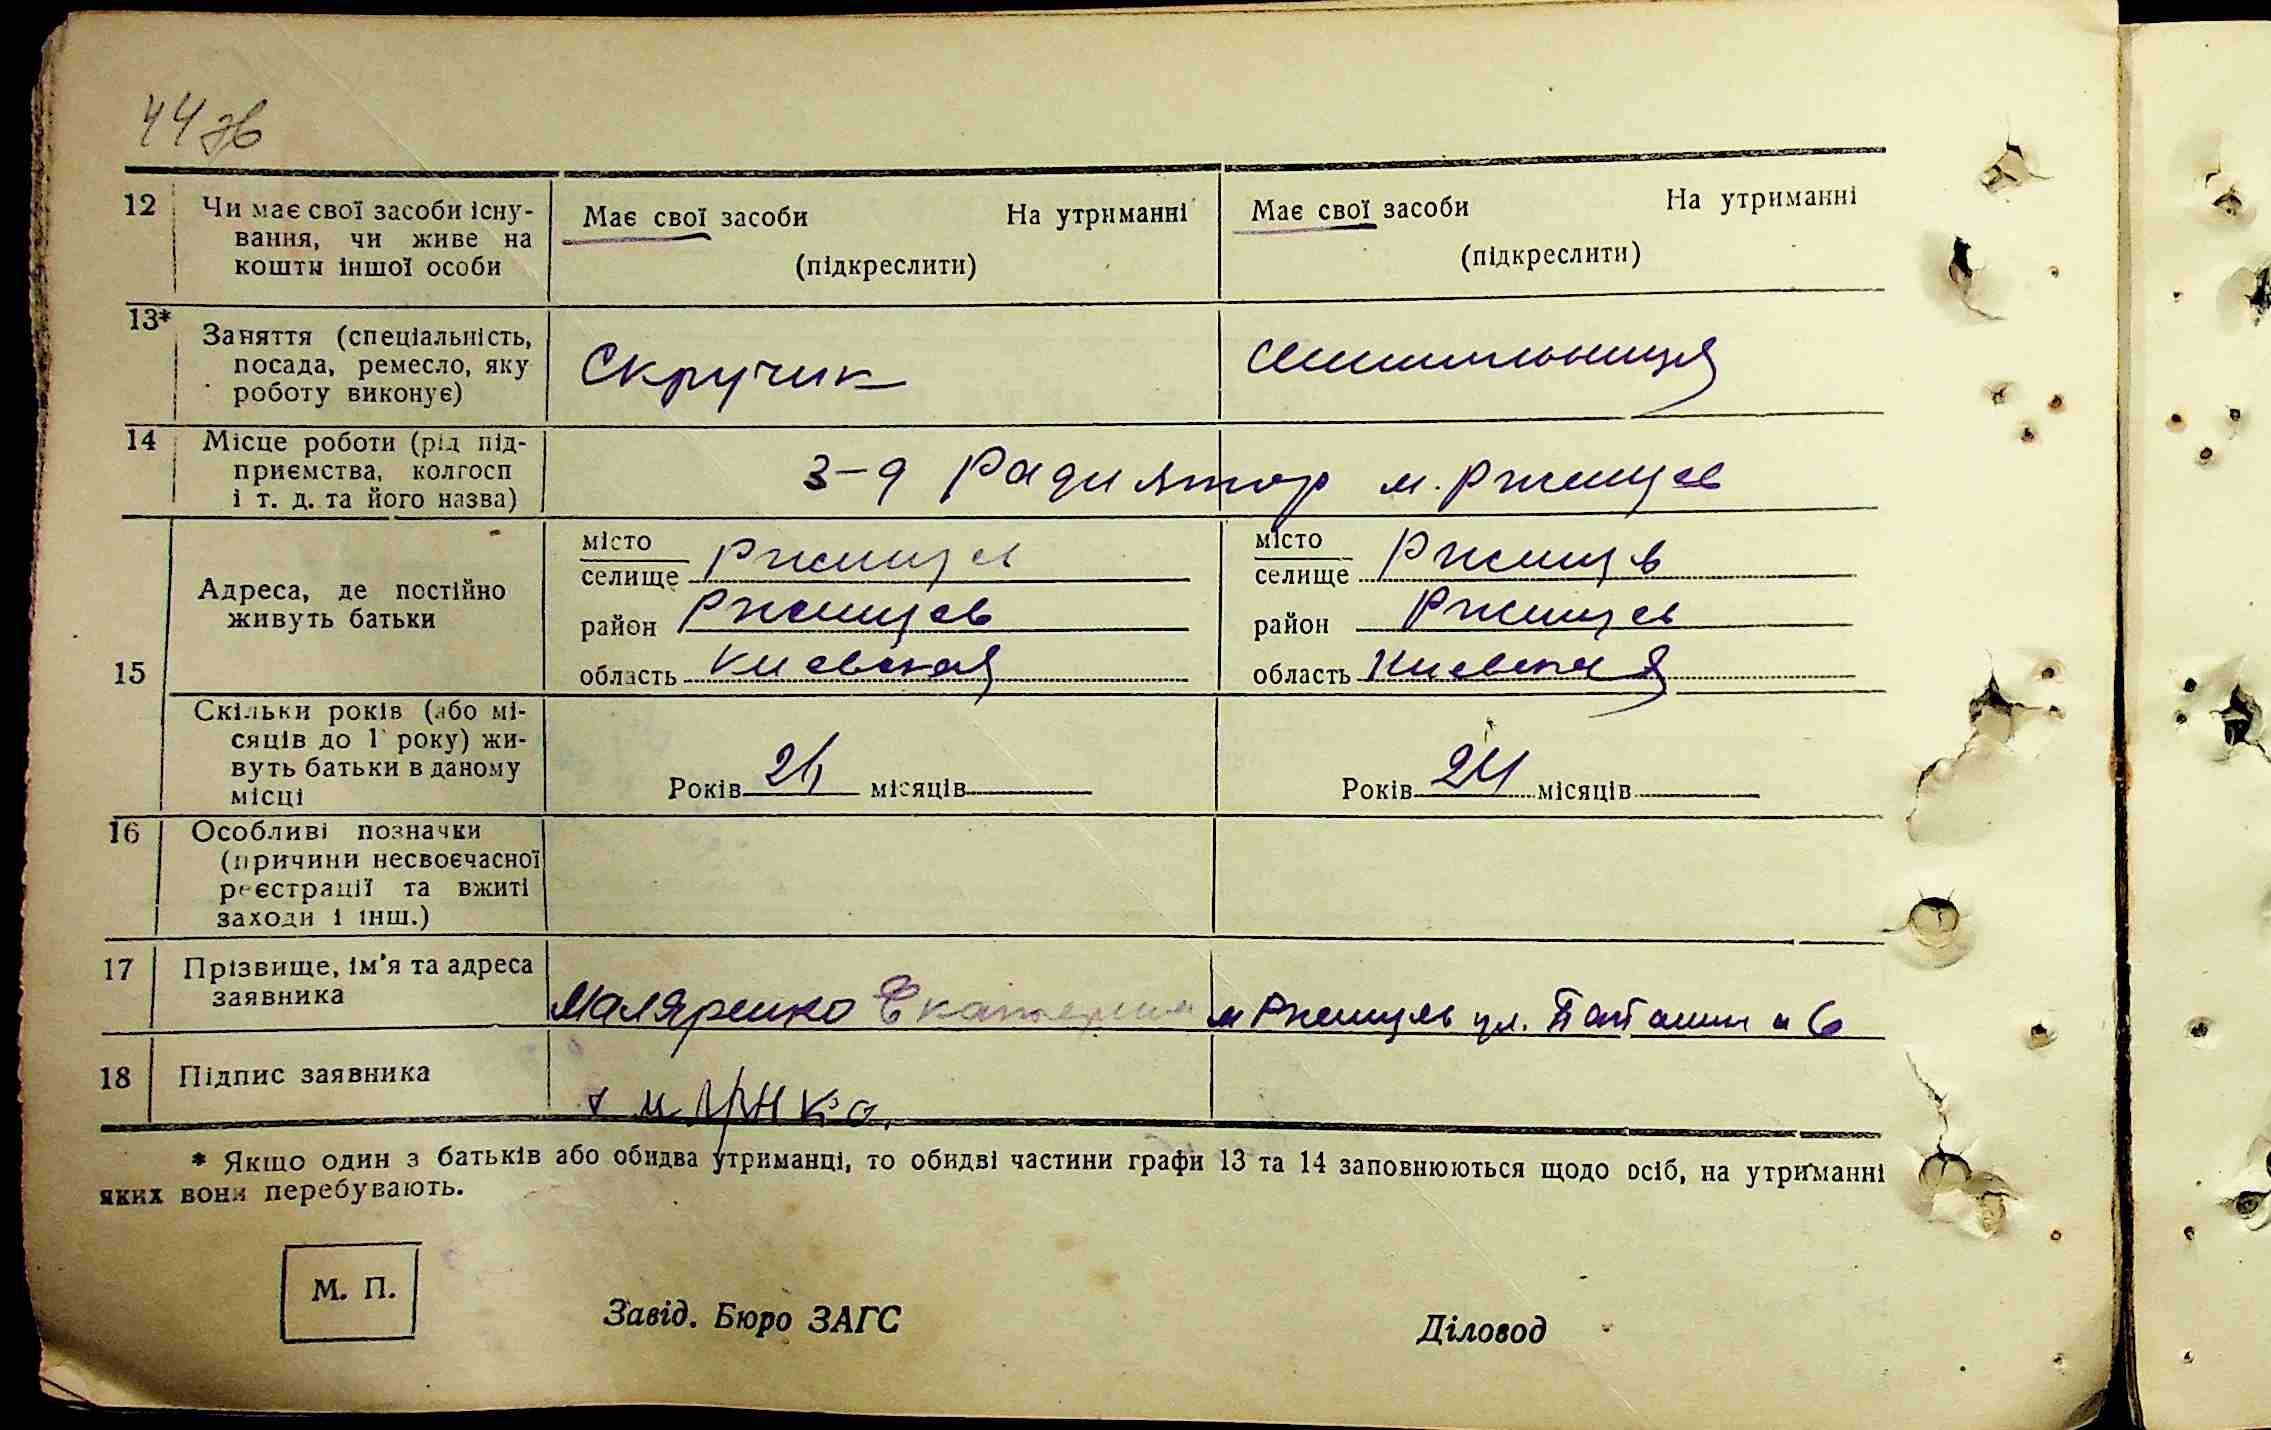 44 зв
12 Чи має свої засоби існу-
вання, чи живе на
кошти іншої особи
Має свої засоби На утриманні
(підкреслити)
Має свої засоби На утриманні
(підкреслити)
13* Заняття (спеціальність,
посада, ремесло, яку
роботу виконує)
Скручик
14 Місце роботи (рід під-
приємства, колгосп
і т. д. та його назва)
з-д Радиятор м. Ржищев
15 Адреса, де постійно
живуть батьки
місто
селище Ржищев
район Ржищев
область Киевская
місто
селище Ржищев
район Ржищев
область Киевская
Скільки років (або мі-
сяців до 1 року) жи-
вуть батьки в даному
місці
Років місяців
Років 24 місяців
16 Особливі позначки
(причини несвоєчасної
реєстрації та вжиті
заходи і інш.)
17 Прізвище, ім'я та адреса
заявника
Маляренко Екатерина м Ржищев ул.
18 Підпис заявника
* Якщо один з батьків або обидва утриманці, то обидві частини графи 13 та 14 заповнюються щодо осіб, на утриманні
яких вони перебувають.
М. П.
Завід. Бюро ЗАГС
Діловод